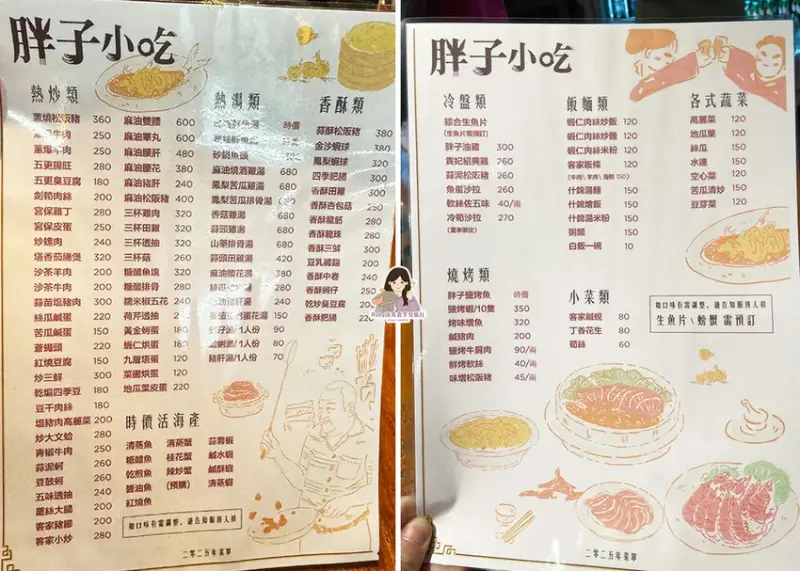 胖子小吃
熱炒類
蔥燒松阪豬 360
牛肉 250
蔥爆牛肉 250
五更腸旺 280
五更臭豆腐 180
劍筍肉絲 200
宮保雞丁 280
宮保皮蛋 250
炒螺肉 240
塔香茄腸煲 320
沙茶羊肉 200
沙茶牛肉 200
蒜苗塩豬肉 300
絲瓜鹹蛋 210
苦瓜鹹蛋 150
蒼蠅頭 220
紅燒豆腐 150
炒三鮮 300
乾煸四季豆 180
豆干肉絲 180
塩豬肉高麗菜 200
炒大文蛤 280
青椒牛肉 250
蒜泥蚵 260
豆鼓蚵 260
五味透抽 240
薑絲大腸 200
客家豬腳 200
客家小炒 280
麻油雙腰 600
麻油睪丸 600
麻油腰肉 480
麻油腰花 380
麻油豬肝 240
麻油松阪豬 400
三杯雞肉 320
三杯田雞 320
三杯透抽 240
三杯菇 260
糖醋魚塊 320
糖醋排骨 280
糯米椒五花 240
荷芹透抽 250
黃金蚵蛋 180
蝦仁烘蛋 180
九層塔蛋 120
菜圃烘蛋 120
地瓜葉皮蛋 220
時價活海產
清蒸魚 清蒸蟹 蒜蓉蝦
糖醋魚 桂花蟹 鹹水蝦
乾煎魚 辣炒蟹 鹹酥蝦
醬油魚 (預購) 清蒸蝦
紅燒魚
如口味有需調整,請告知服務人員
熱湯類
時價
砂鍋魚頭
麻油燒酒雞湯 680
鳳梨苦瓜雞湯 680
鳳梨苦瓜排骨湯 680
香菇雞湯 680
蒜頭雞湯
山藥排骨湯
蒜頭田雞湯
麻油腰花湯 380
豬肝湯 240
/1人份 90
/1人份 80
豬肝湯/1人份 70
香酥類
蒜酥松阪豬 380
金沙蝦球 380
鳳梨蝦球 380
四季肥腸 300
香酥田雞 350
香酥杏包菇 250
香酥龍筋 280
香酥龍珠 280
香酥三鮮 300
豆乳雞翅 200
香酥中卷 240
香酥蚵仔 250
乾炒臭豆腐 200
香酥肥腸 220
二零二五年菜單
胖子小吃
冷盤類
綜合生魚片
(生魚片需預訂)
胖子油雞 300
貴妃紹興雞 260
蒜泥松阪豬 360
魚蛋沙拉 260
軟絲佐五味 40/兩
冷筍沙拉 270
(夏季限定)
燒烤類
胖子鹽烤魚 時價
鹽烤蝦/10隻 350
烤味增魚 320
鹹豬肉 200
鹽烤牛肩肉 90/兩
鮮烤軟絲 40/兩
味增松阪豬 45/兩
飯麵類
蝦仁肉絲炒飯 120
蝦仁肉絲炒麵 120
蝦仁肉絲米粉 120
客家粄條 120
(牛肉\羊肉\海鮮 150)
什錦湯麵 150
什錦燴飯 150
什錦湯米粉 150
粥類 150
白飯一碗 10
小菜類
客家鹹蜆 80
丁香花生 80
筍絲 60
各式蔬菜
高麗菜 120
地瓜葉 120
絲瓜 150
水蓮 150
空心菜 120
苦瓜清炒 150
豆芽菜 120
如口味有需調整,請告知服務人員
生魚片\螃蟹 需預訂
二零二五年菜單